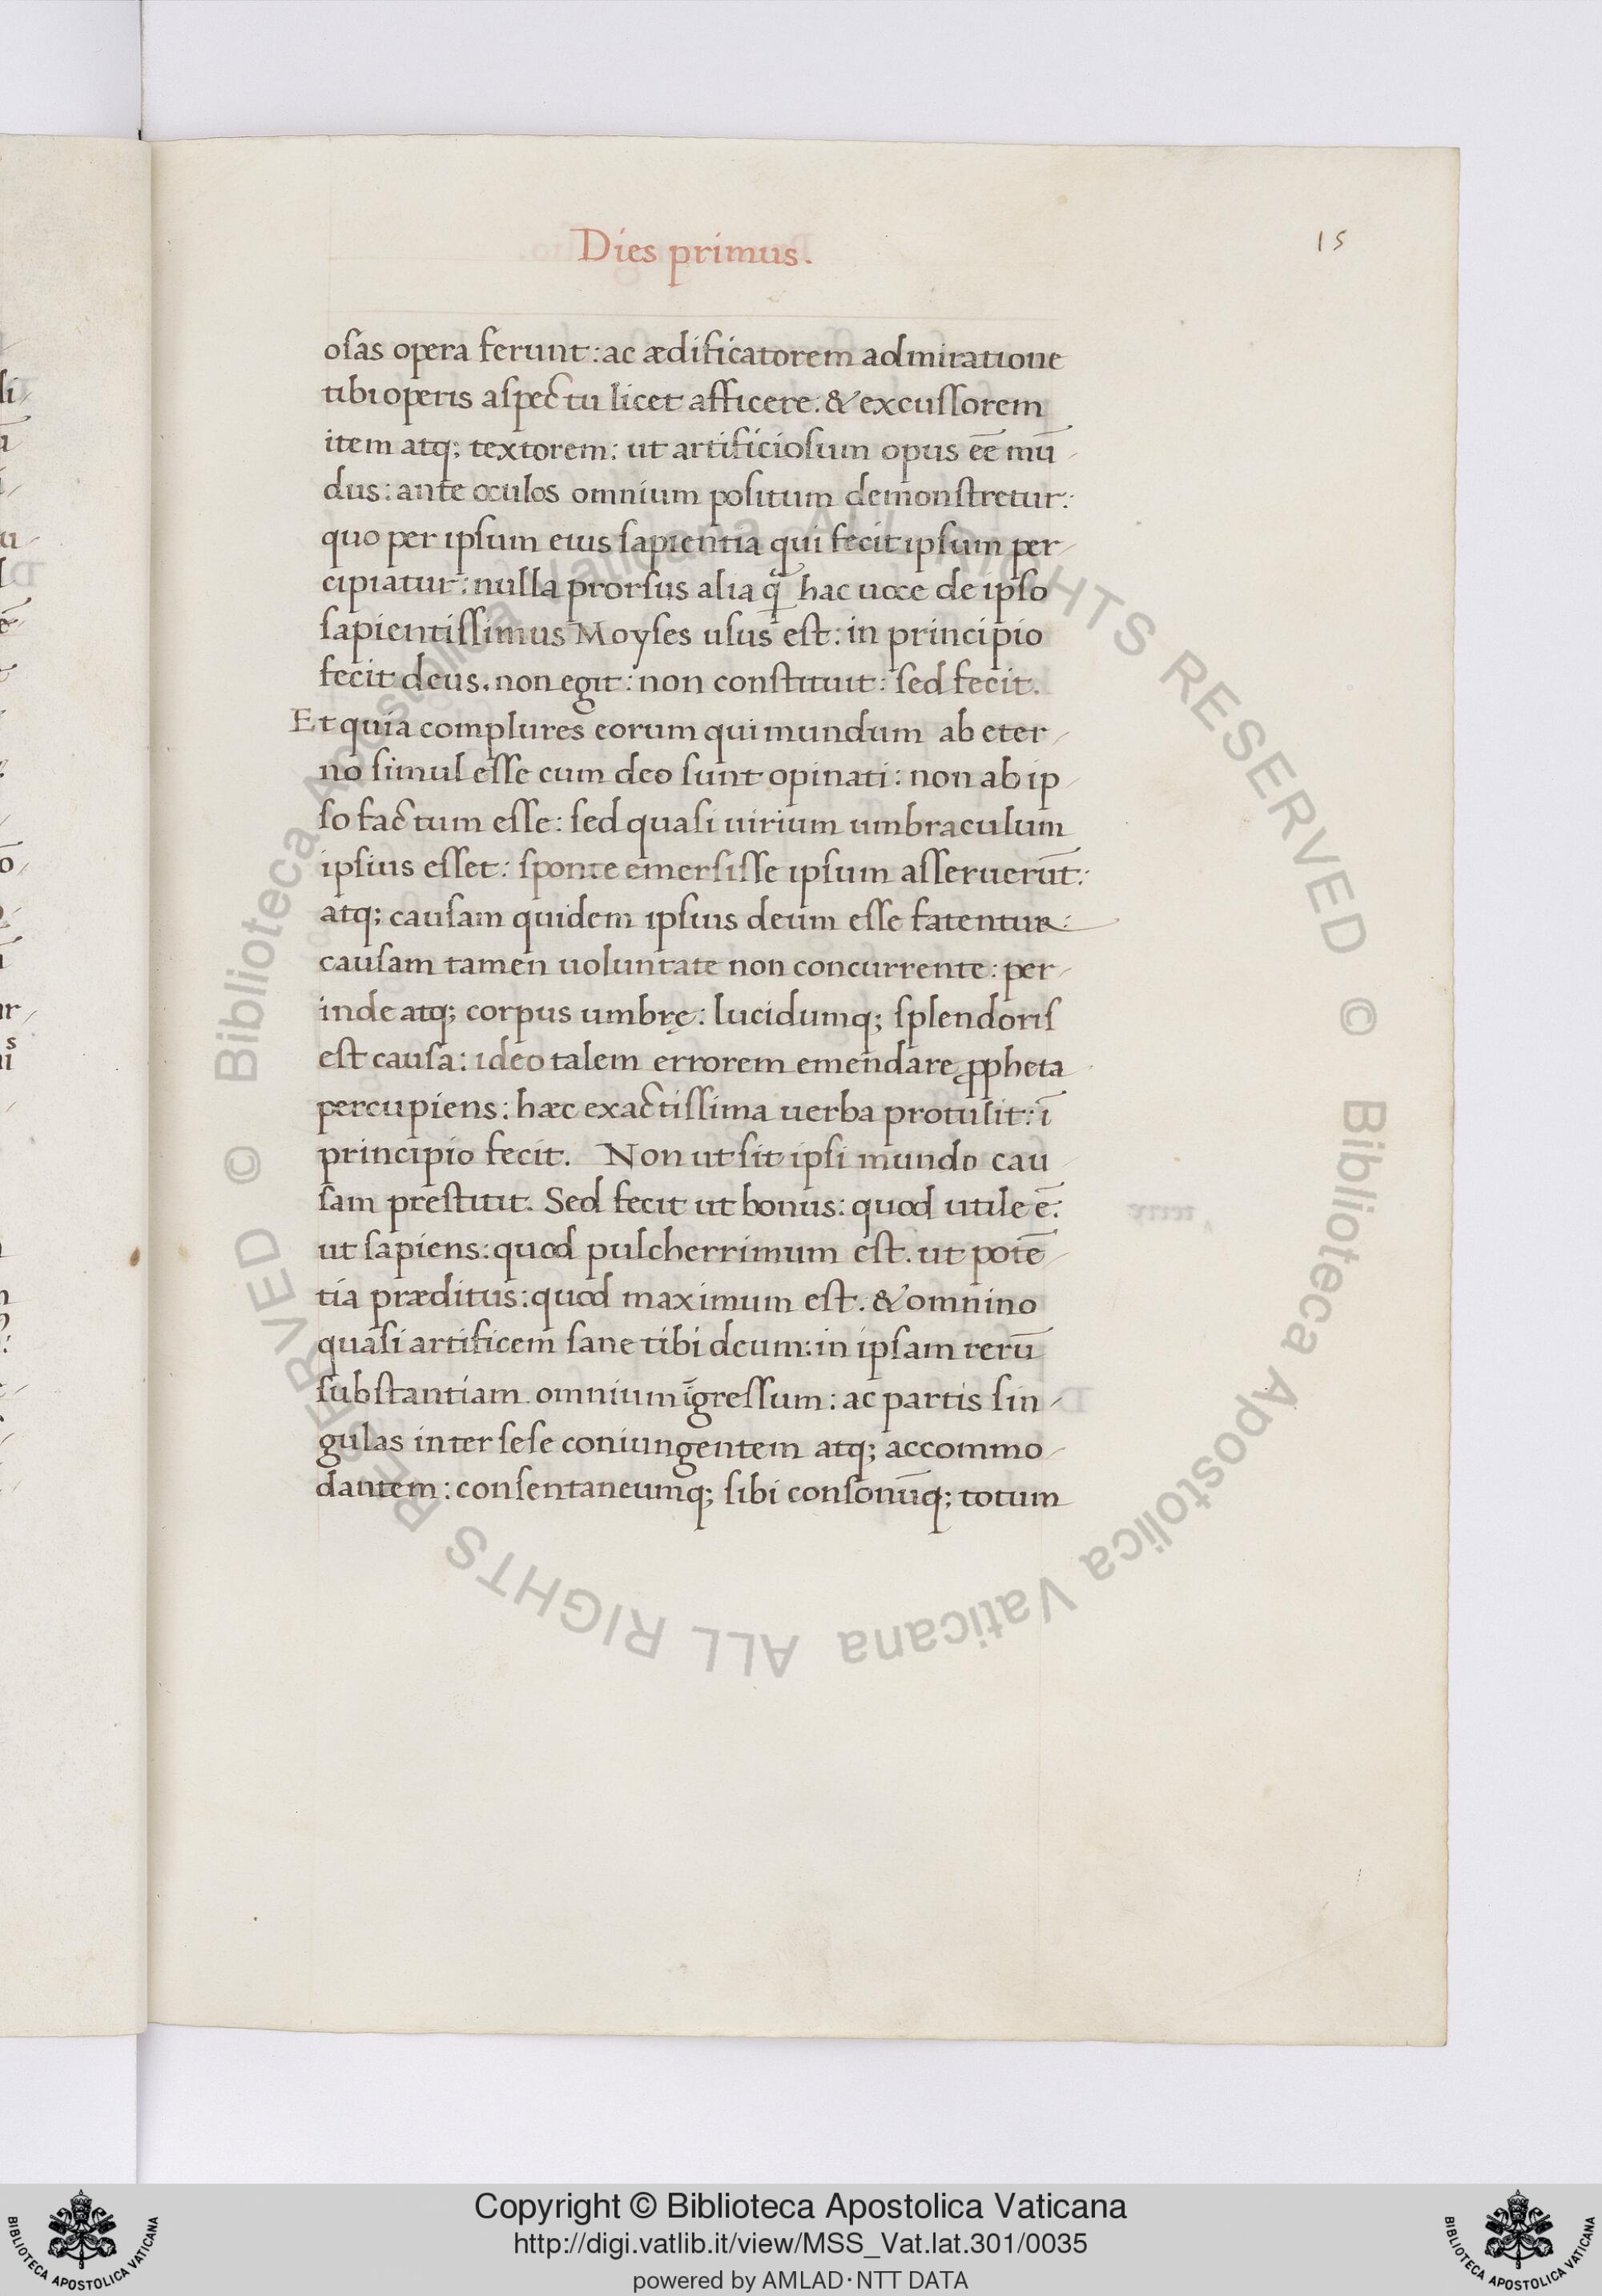 Dies primus.
15
osas opera ferunt: ac ædificatorem admiratione
tibi operis aspectu licet afficere. & excussorem
item atq; textorem: ut artificiosum opus eē mū
dus: ante oculos omnium positum demonstretur:
quo per ipsum eius sapientia qui fecit ipsum per
cipiatur: nulla prorsus alia q̃ hac uoce de ipso
sapientissimus Moyses usus est: in principio
fecit deus. non egit: non constituit: sed fecit.
Et quia complures eorum qui mundum ab eter
no simul esse cum deo sunt opinati: non ab ip
so factum esse: sed quasi uirium umbraculum
ipsius esset: sponte emersisse ipsum asseruerūt:
atq; causam quidem ipsius deum esse fatentur:
causam tamen uoluntate non concurrente: per
inde atq; corpus umbrę: lucidumq; splendoris
est causa: ideo talem errorem emendare ꝓpheta
percupiens: hæc exactissima uerba protulit: ī
principio fecit. Non ut sit ipsi mundo cau
sam prestitit. Sed fecit ut bonus: quod utile ē:
ut sapiens: quod pulcherrimum est. ut potē
tia præditus: quod maximum est. & omnino
quasi artificem sane tibi deum: in ipsam rerū
substantiam omnium īgressum: ac partis sin
gulas inter sese coniungentem atq; accommo
dantem: consentaneumq; sibi consonūq; totum
© Biblioteca Apostolica Vaticana ALL RIGHTS RESERVED © Biblioteca Apostolica Vaticana ALL RIGHTS RESERVED
Copyright © Biblioteca Apostolica Vaticana
http://digi.vatlib.it/view/MSS_Vat.lat.301/0035
powered by AMLAD·NTT DATA
BIBLIOTECA APOSTOLICA VATICANA
BIBLIOTECA APOSTOLICA VATICANA